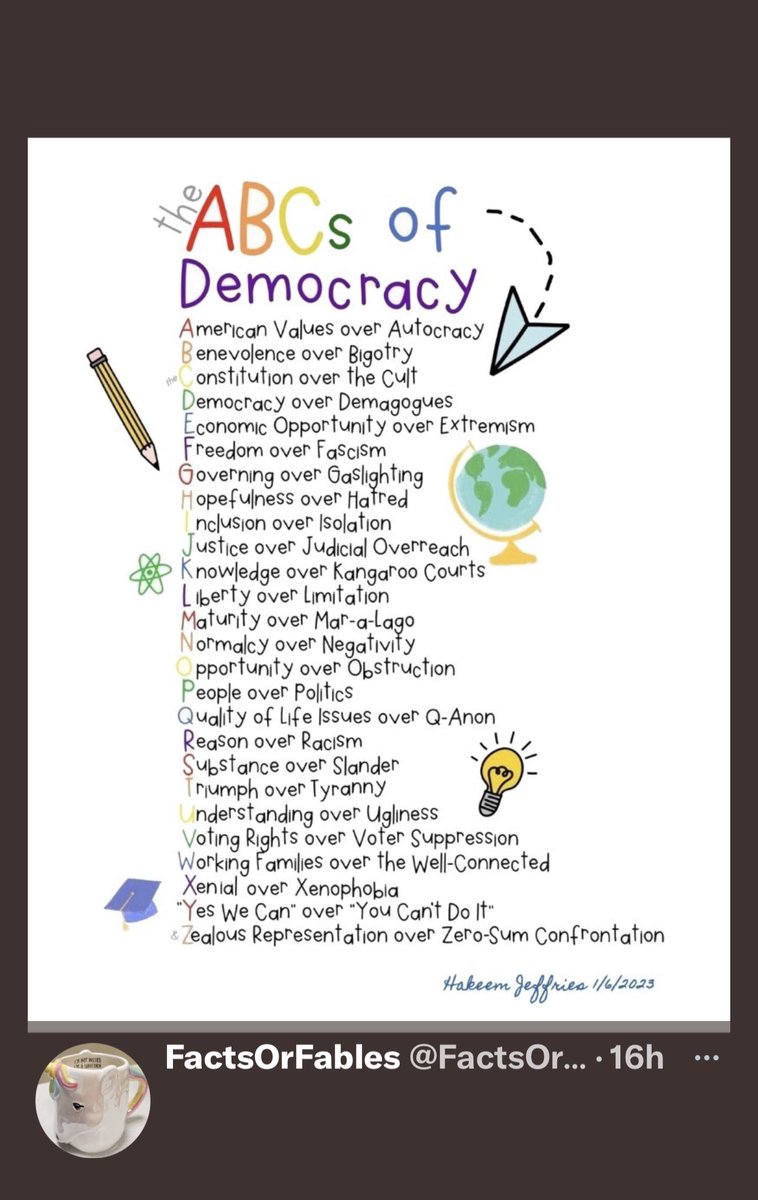 the ABCs of
Democracy
American Values over Autocracy
Benevolence over Bigotry
the Constitution over the Cult
Democracy over Demagogues
Economic Opportunity over Extremism
Freedom over Fascism
Governing over Gaslighting
Hopefulness over Hatred
Inclusion over Isolation
Justice over Judicial Overreach
Knowledge over Kangaroo Courts
Liberty over Limitation
Maturity over Mar-a-Lago
Normalcy over Negativity
Opportunity over Obstruction
People over Politics
Quality of Life Issues over Q-Anon
Reason over Racism
Substance over Slander
Triumph over Tyranny
Understanding over Ugliness
Voting Rights over Voter Suppression
Working Families over the Well-Connected
Xenial over Xenophobia
"Yes We Can" over "You Can't Do It"
& Zealous Representation over Zero-Sum Confrontation
Hakeem Jeffries 1/6/2023
FactsOrFables @FactsOr... · 16h ...